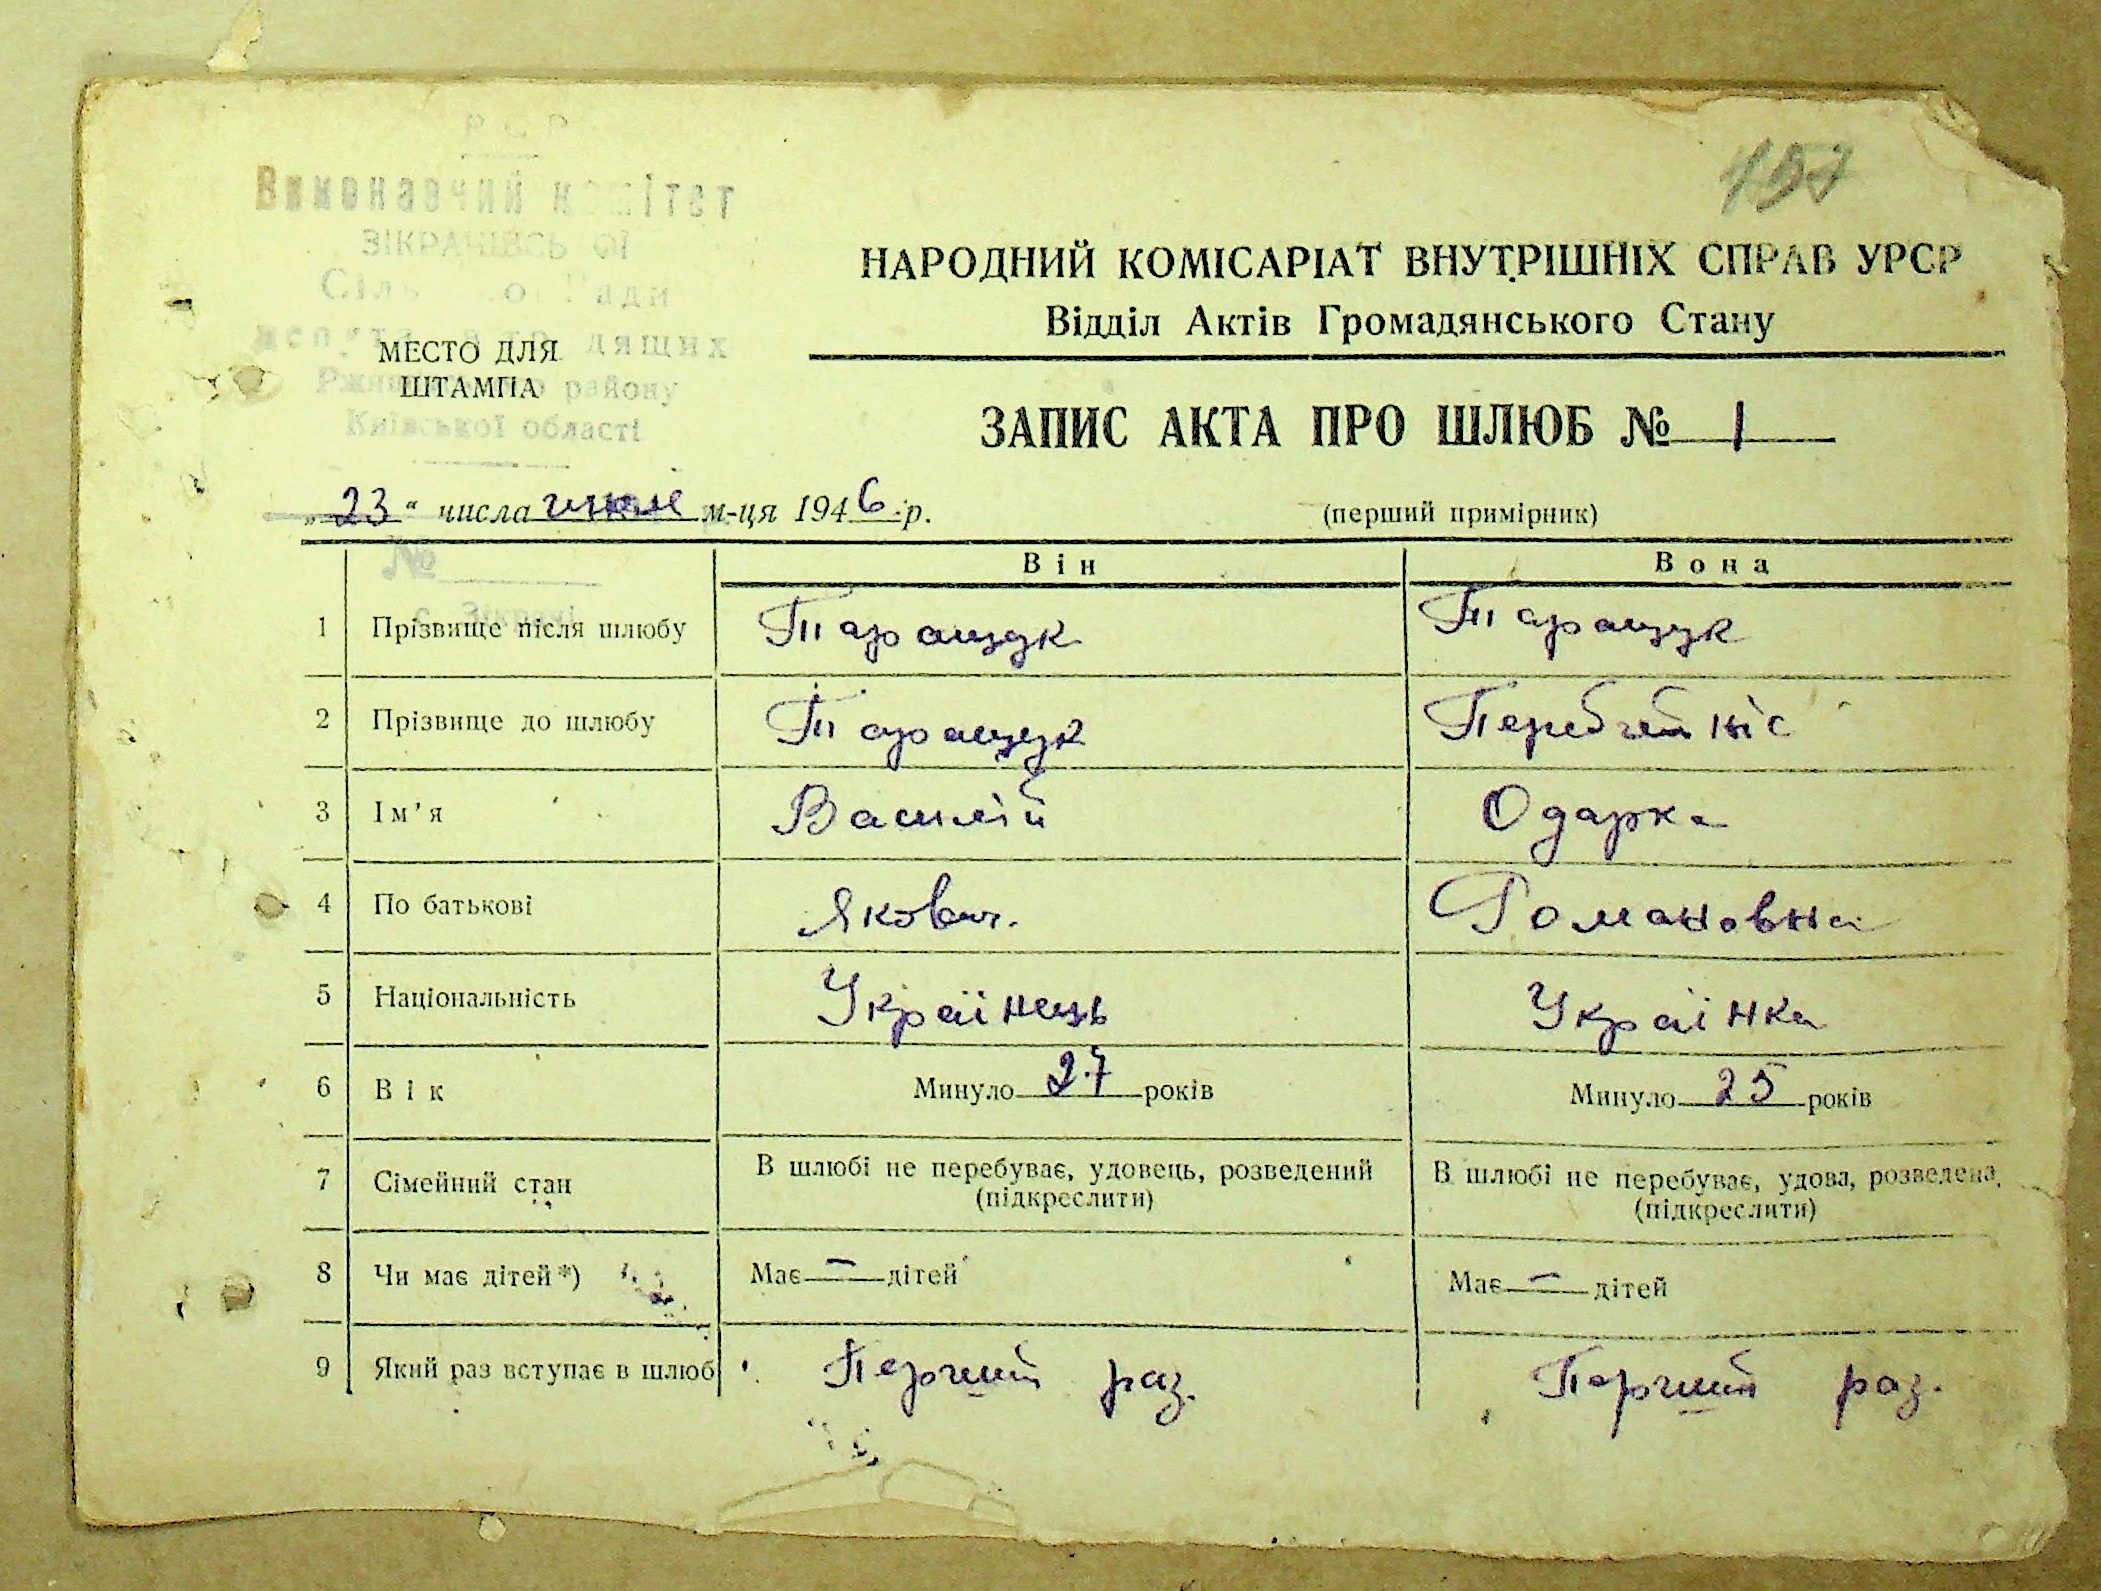 157
Р С Р
Виконавчий комітет
ЗІКРАЧІВСЬКОЇ
Сільської Ради
депутатів трудящих
Ржищівського району
Київської області
№
с. Зікрачі
МЕСТО ДЛЯ
ШТАМПА
НАРОДНИЙ КОМІСАРІАТ ВНУТРІШНІХ СПРАВ УРСР
Відділ Актів Громадянського Стану
ЗАПИС АКТА ПРО ШЛЮБ № 1
„23“ числа м-ця 1946 р.
(перший примірник)
Він Вона
1 Прізвище після шлюбу Таращук Таращук
2 Прізвище до шлюбу Таращук
3 Ім'я Василій Одарка
4 По батькові Якович. Романовна
5 Національність Українець Українка
6 Вік Минуло 27 років Минуло 25 років
7 Сімейний стан В шлюбі не перебуває, удовець, розведений В шлюбі не перебуває, удова, розведена,
(підкреслити) (підкреслити)
8 Чи має дітей*) Має — дітей Має — дітей
9 Який раз вступає в шлюб Перший раз. Перший раз.